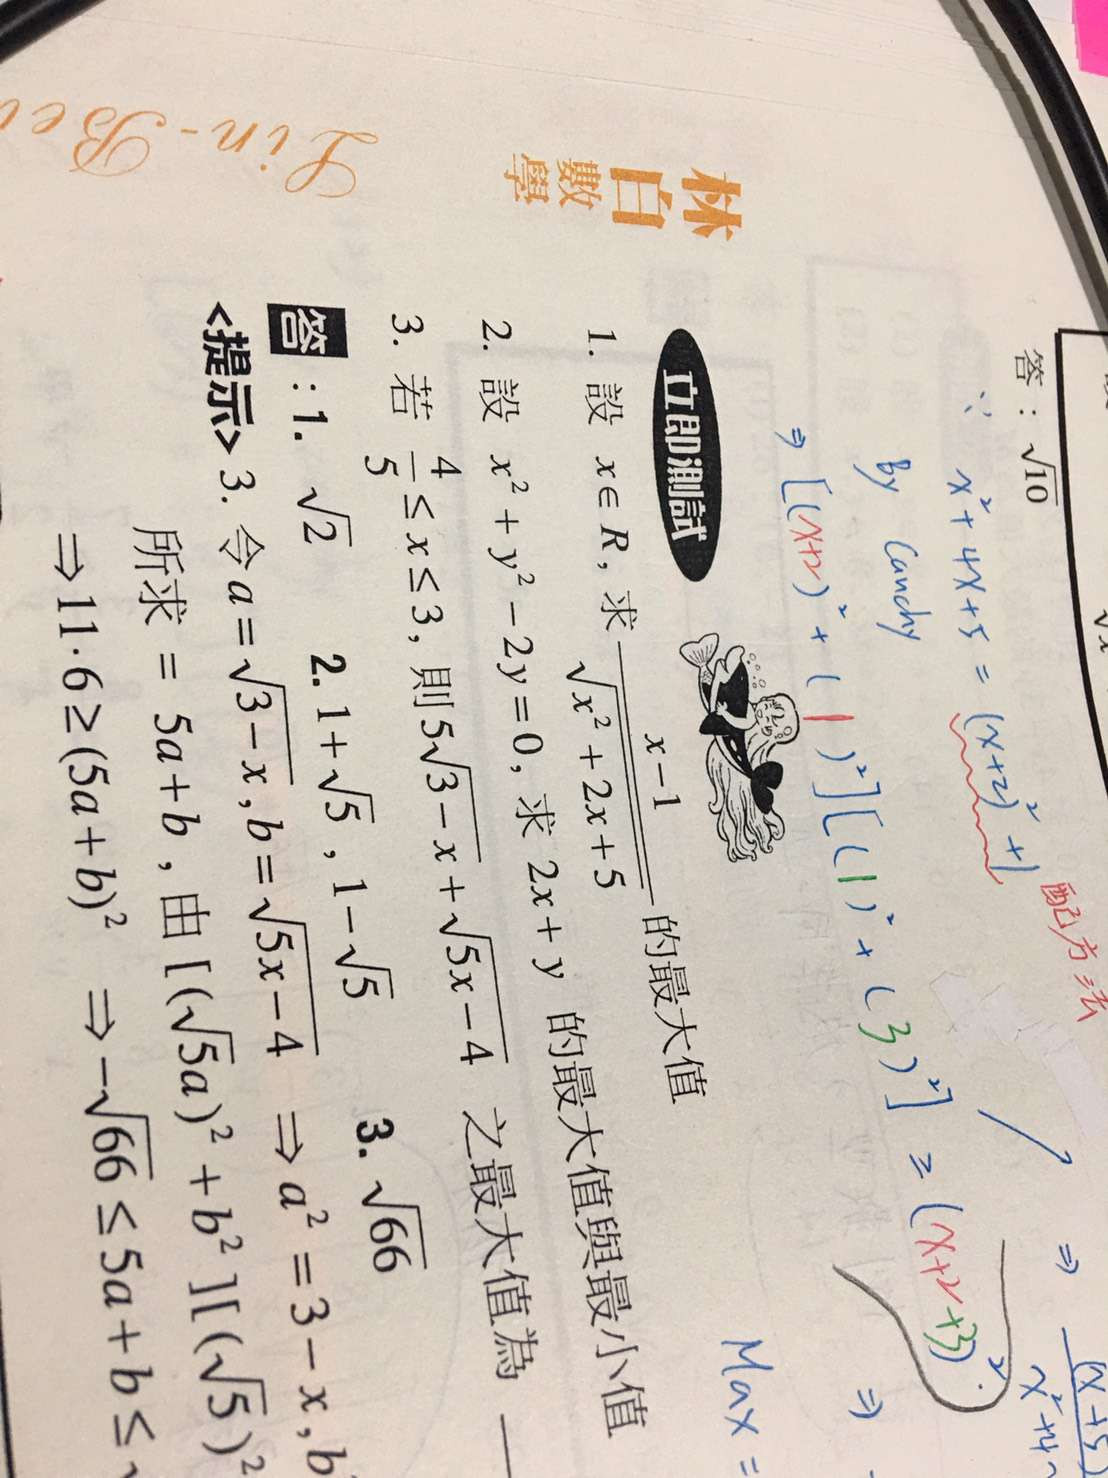 答：√10
∵ x²+4x+5 = (x+2)²+1
配方法
By Cauchy
⇒ [(x+2)²+(1)²][(1)²+(3)²] ≥ (x+2+3)²
⇒
⇒
Max =
立即測試
1. 設 x∈R, 求 (x−1)/√(x²+2x+5) 的最大值
2. 設 x²+y²−2y=0, 求 2x+y 的最大值與最小值
3. 若 4/5≤x≤3, 則 5√(3−x)+√(5x−4) 之最大值為
答：1. √2 2. 1+√5, 1−√5 3. √66
<提示> 3. 令 a=√(3−x), b=√(5x−4) ⇒ a²=3−x, b
所求 = 5a+b, 由 [(√5a)²+b²][(√5)²
⇒ 11·6≥(5a+b)² ⇒ −√66≤5a+b≤
林白
數學
Lin-Be